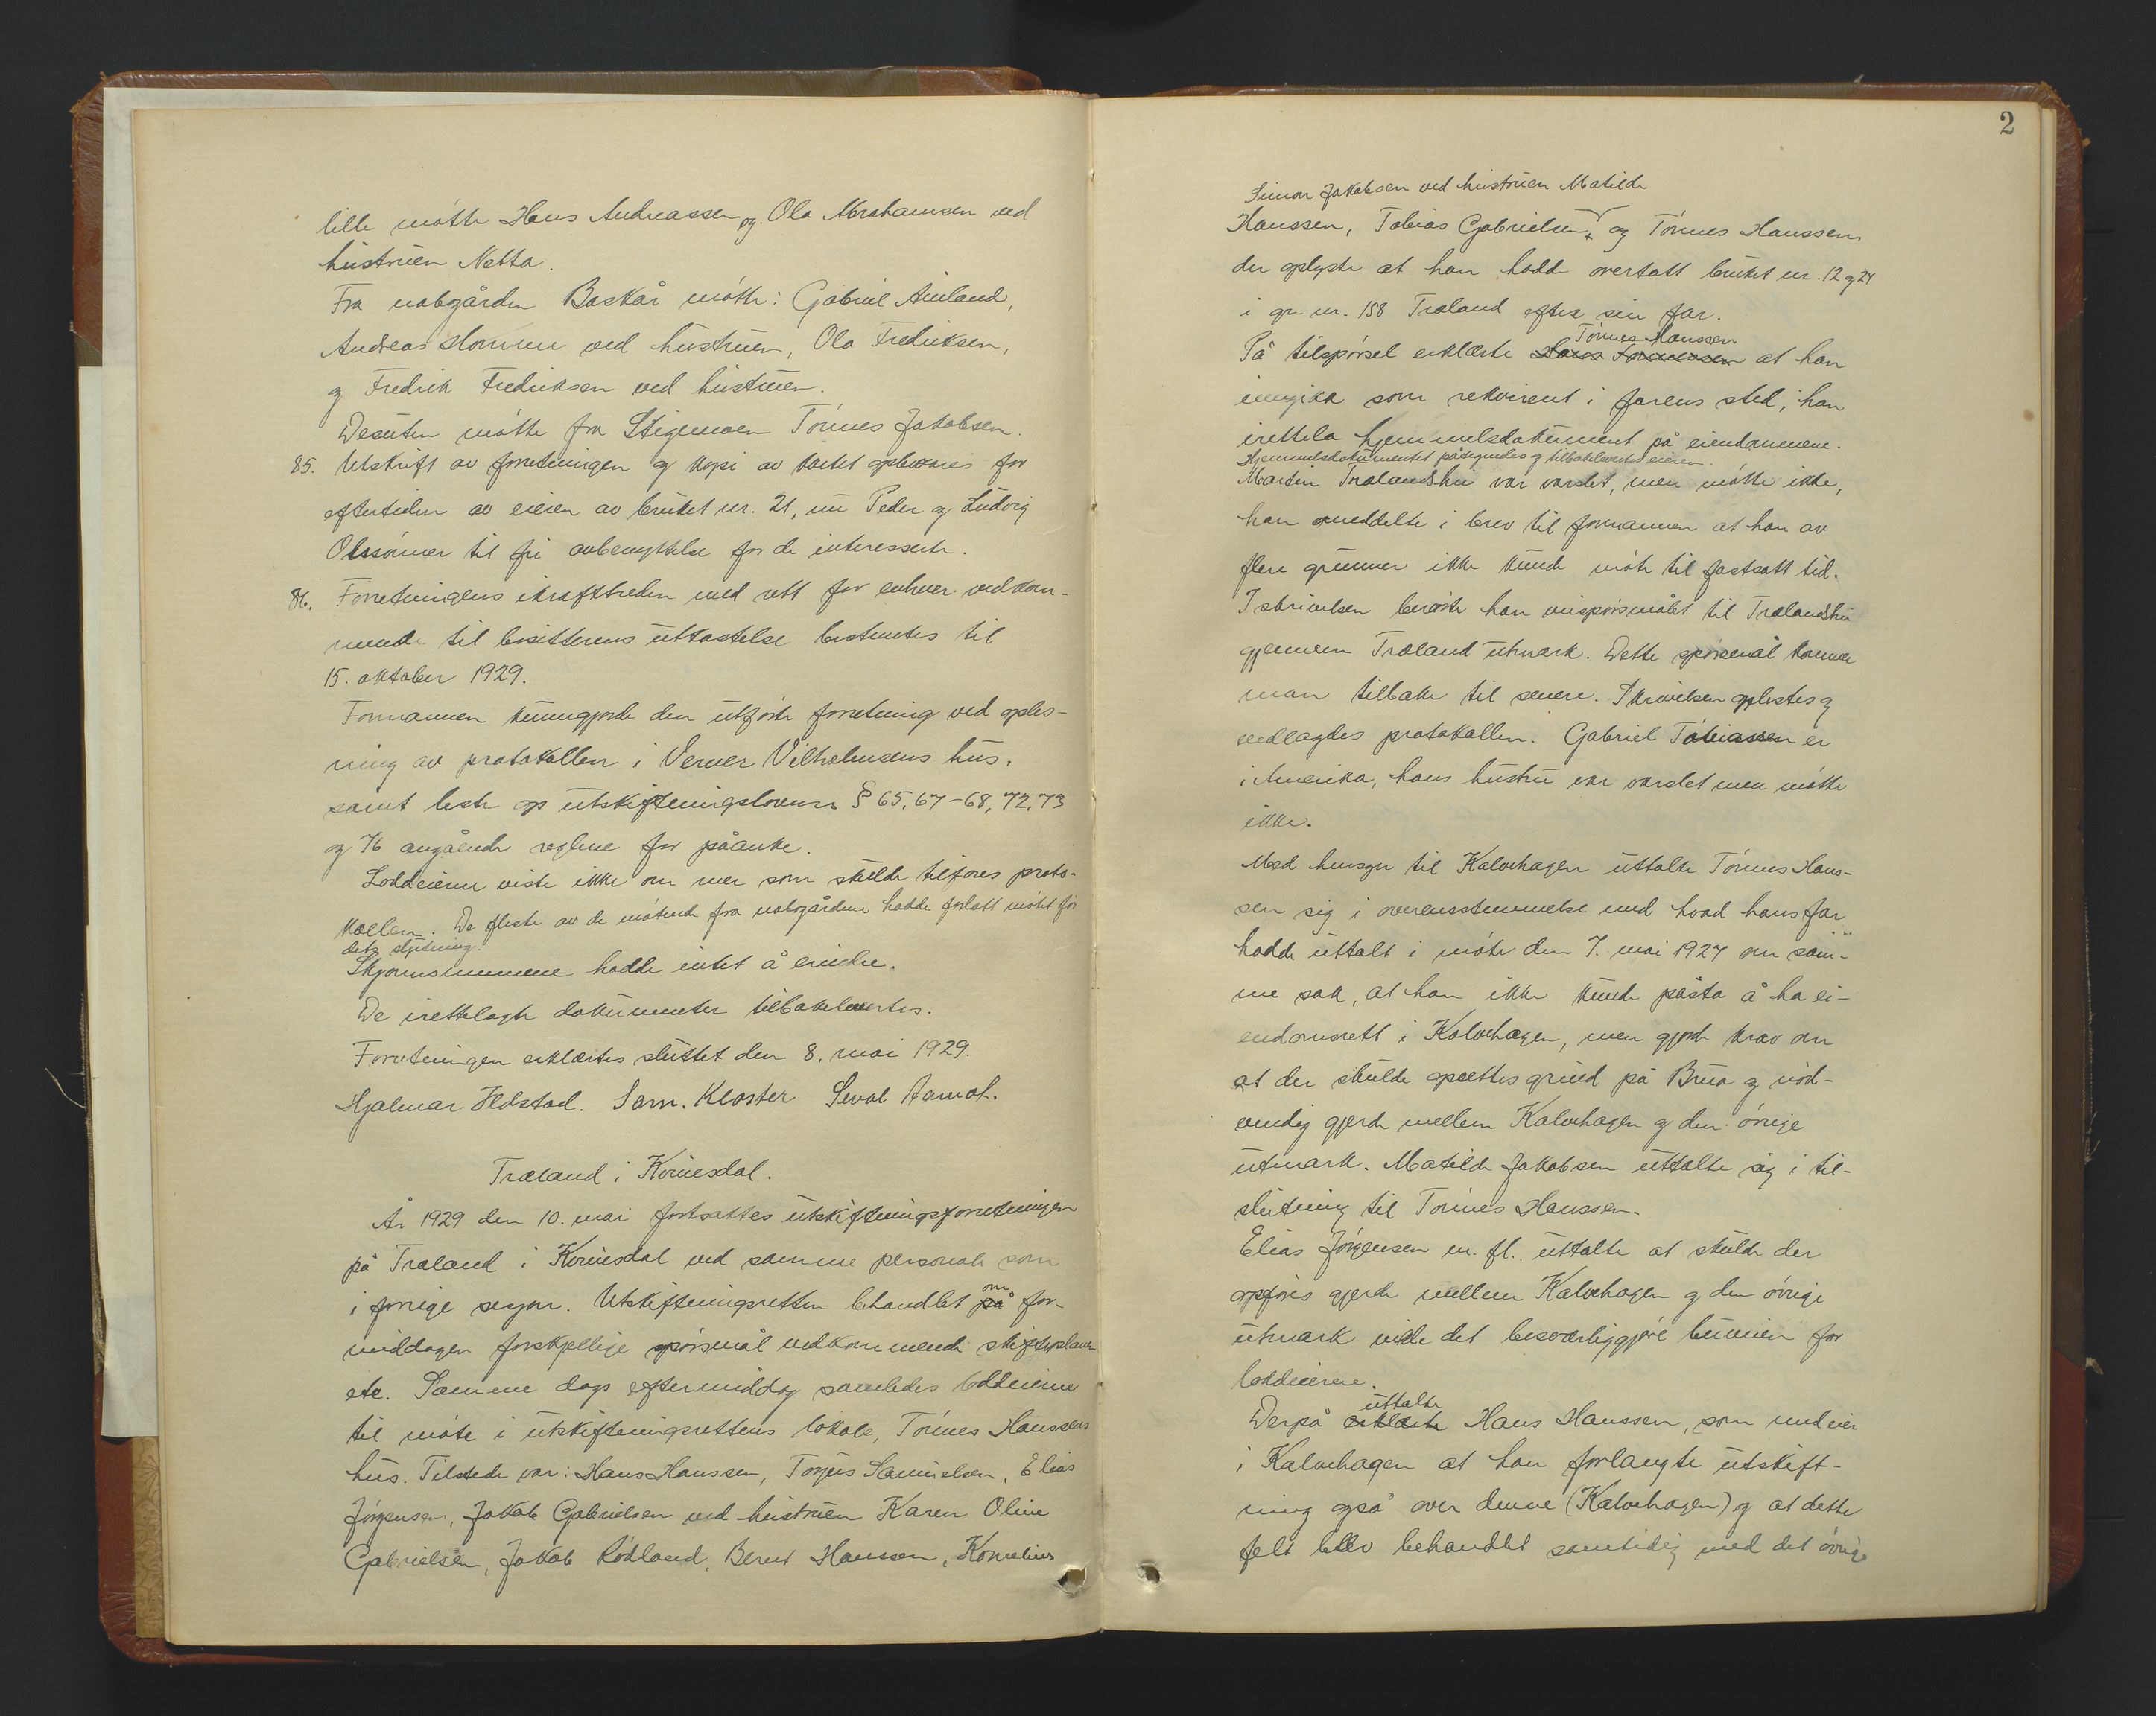 lille møtte Hans Andreassen og Ola Abrahamsen ved
hustruen Netta.
Fra nabogården Baskår møtte: Gabriel Amland,
Andreas Homme ved hustruen, Ola Fredriksen,
og Fredrik Fredriksen ved hustruen.
Desuten møtte fra Stigemoen Tønnes Jakobsen.
85. Utskrift av forretningen og kopi av kartet opbevares for
eftertiden av eieren av bruket nr. 21, nu Peder og Ludvig
Olssønner til fri avbenyttelse for de interesserte.
86. Forretningens ikrafttreden med rett for enhver vedkom-
mende til besitterens utkastelse bestemtes til
15. oktober 1929.
Formannen kunngjorde den utførte forretning ved oples-
ning av protokollen i Verner Vilhelmsens hus,
samt leste op utskiftningslovens § 65, 67-68, 72, 73
og 76 angående reglene for påanke.
Loddeierne viste ikke om mer som skulde tilføres proto-
kollen. De fleste av de møtende fra nabogårdene hadde forlatt møtet før
dets slutning.
Skjønnsmennene hadde intet å erindre.
De irettelagte dokumenter tilbakelevertes.
Forretningen erklærtes sluttet den 8. mai 1929.
Hjalmar Ildstad. Sam. Kloster Seval Aamot.
Træland i Kvinesdal.
År 1929 den 10. mai fortsattes utskiftningsforretningen
på Træland i Kvinesdal ved samme personale som
i forrige sesjon. Utskiftningsretten behandlet på om for-
middagen forskjellige spørsmål vedkommende skifteplanen
etc. Samme dags eftermiddag samledes loddeierne
til møte i utskiftningsrettens lokale, Tønnes Hanssens
hus. Tilstede var: Hans Hanssen, Torjus Samuelsen, Elias
Jørgensen, Jakob Gabrielsen ved hustruen Karen Oline
Gabrielsen, Jakob Rødland, Bernt Hanssen, Kornelius
2
Simon Jakobsen ved hustruen Matilde
Hanssen, Tobias Gabrielsen, og Tønnes Hanssen,
der oplyste at han hadde overtatt bruket nr. 12 og 24
i gr. nr. 158 Træland efter sin far.
Tønnes Hanssen
På tilspørsel erklærte Hans Tønnessen at han
inngikk som rekvirent i farens sted, han
irettela hjemmelsdokument på eiendommene.
Hjemmelsdokumentet påtegnedes og tilbakeleveres eieren.
Martin Trælandshei var varslet, men møtte ikke,
han meddelte i brev til formannen at han av
flere grunner ikke kunde møte til fastsatt tid.
I skrivelsen berørte han veispørsmålet til Trælandshei
gjennem Træland utmark. Dette spørsmål kommer
man tilbake til senere. Skrivelsen oplestes og
vedlagdes protokollen. Gabriel Tobiassen er
i Amerika, hans hustru var varslet men møtte
ikke.
Med hensyn til Kalvehagen uttalte Tønnes Hans-
sen sig i overensstemmelse med hvad hans far
hadde uttalt i møte den 7. mai 1927 om sam-
me sak, at han ikke kunde påstå å ha ei-
endomsrett i Kalvehagen, men gjorde krav om
at der skulde opsettes grind på Brua og nød-
vendig gjerde mellem Kalvehagen og den øvrige
utmark. Matilde Jakobsen uttalte sig i til-
slutning til Tønnes Hanssen.
Elias Jørgensen m. fl. uttalte at skulde der
opføris gjerde mellem Kalvehagen og den øvrige
utmark vilde det besværliggjøre bumien for
loddeierne.
uttalte
Derpå erklærte Hans Hanssen, som medeier
i Kalvehagen at han forlangte utskift-
ning også over denne (Kalvehagen) og at dette
felt blev behandlet samtidig med det øvrige